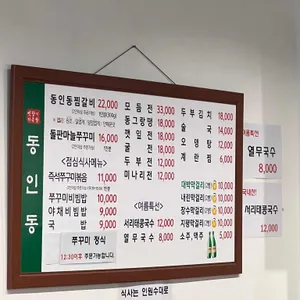 동인동
동인동찜갈비 22,000
돌판마늘쭈꾸미 16,000
<점심식사메뉴>
즉석쭈꾸미볶음 11,000
쭈꾸미비빔밥 10,000
야채비빔밥 9,000
국밥 9,000
쭈꾸미 정식
12:30이후 주문가능합니다.
모듬전 33,000
동그랑땡 18,000
깻잎전 18,000
굴전 18,000
두부전 12,000
미나리전 12,000
<여름특선>
서리태콩국수 12,000
열무국수 8,000
두부김치 18,000
술국 14,000
오뎅탕 9,000
계란찜 6,000
대박막걸리
내린막걸리
장수막걸리
지평막걸리
소주,맥주 5,000
여름특선
열무국수
8,000
서리태콩국수
12,000
식사는 인원수대로